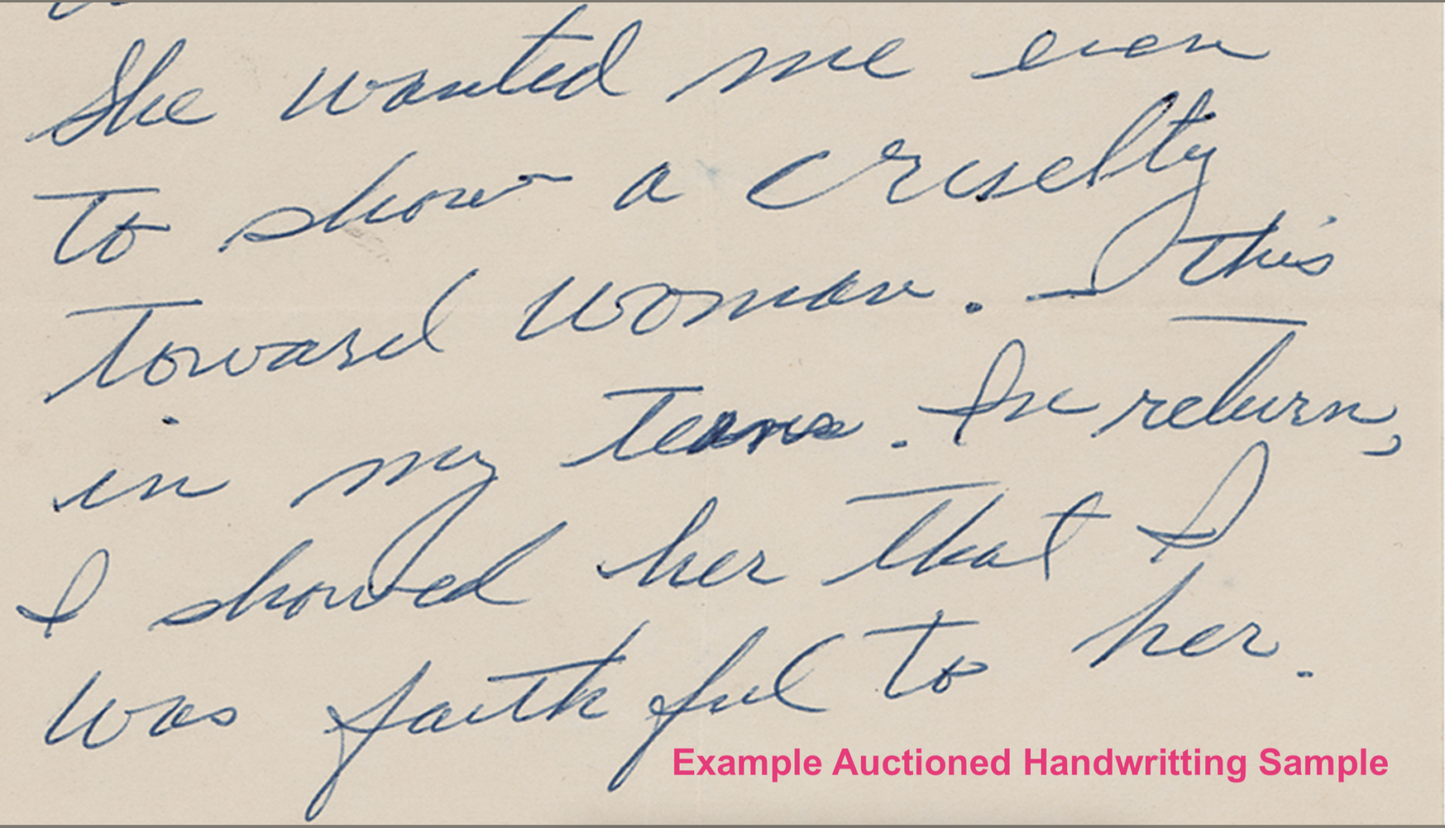 She wanted me even
to show a cruelty
toward woman. – This
in my teens. In return,
I showed her that I
was faithful to her.
Example Auctioned Handwritting Sample